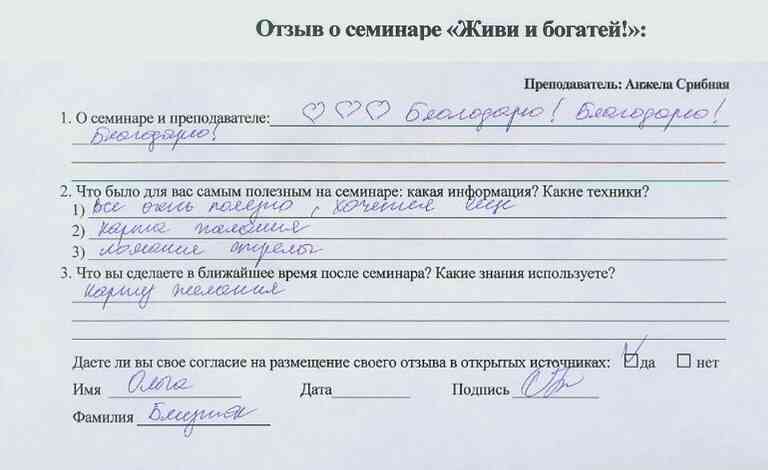 Отзыв о семинаре «Живи и богатей!»:
Преподаватель: Анжела Срибная
1. О семинаре и преподавателе: ♡ ♡ ♡ Благодарю! Благодарю!
Благодарю!
2. Что было для вас самым полезным на семинаре: какая информация? Какие техники?
1) Все очень полезно, хочется еще
2) карта желания
3) ломание стрелы
3. Что вы сделаете в ближайшее время после семинара? Какие знания используете?
карту желания
Даете ли вы свое согласие на размещение своего отзыва в открытых источниках: ☑ да ☐ нет
Имя Ольга Дата Подпись
Фамилия